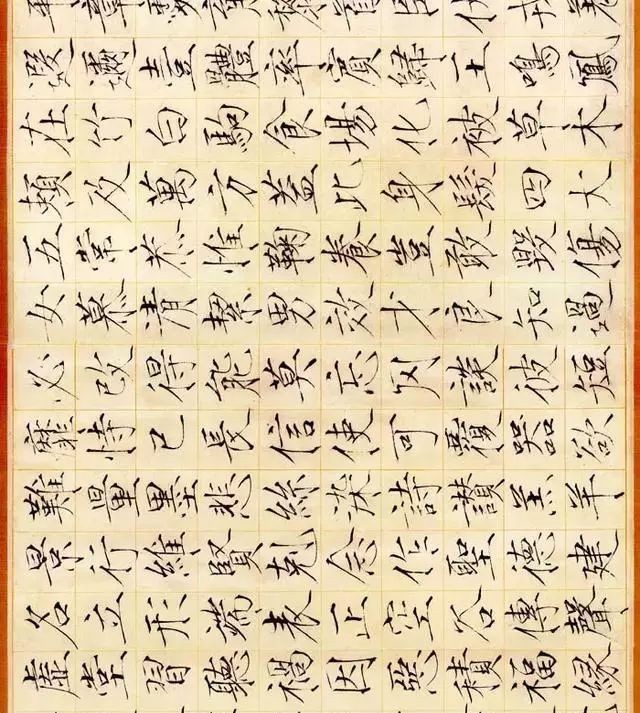 遐邇壹體率賓歸王鳴鳳
在竹白駒食場化被草木
賴及萬方蓋此身髮四大
五常恭惟鞠養豈敢毀傷
女慕清潔男效才良知過
必改得能莫忘罔談彼短
靡恃己長信使可覆器欲
難量墨悲絲染詩讚羔羊
景行維賢剋念作聖德建
名立形端表正空谷傳聲
虛堂習聽禍因惡積福緣